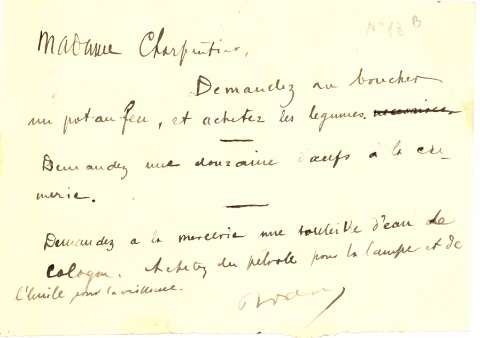 No 13 B
Madame Charpentier,
Demandez au boucher
un pot au feu, et achetez les legumes
Demandez une douzaine d'œufs à la cre-
merie.
Demandez a la mercerie une bouteille d'eau de
Cologne. Achetez du petrole pour la lampe et de
l'huile pour la veilleuse.
Rodin